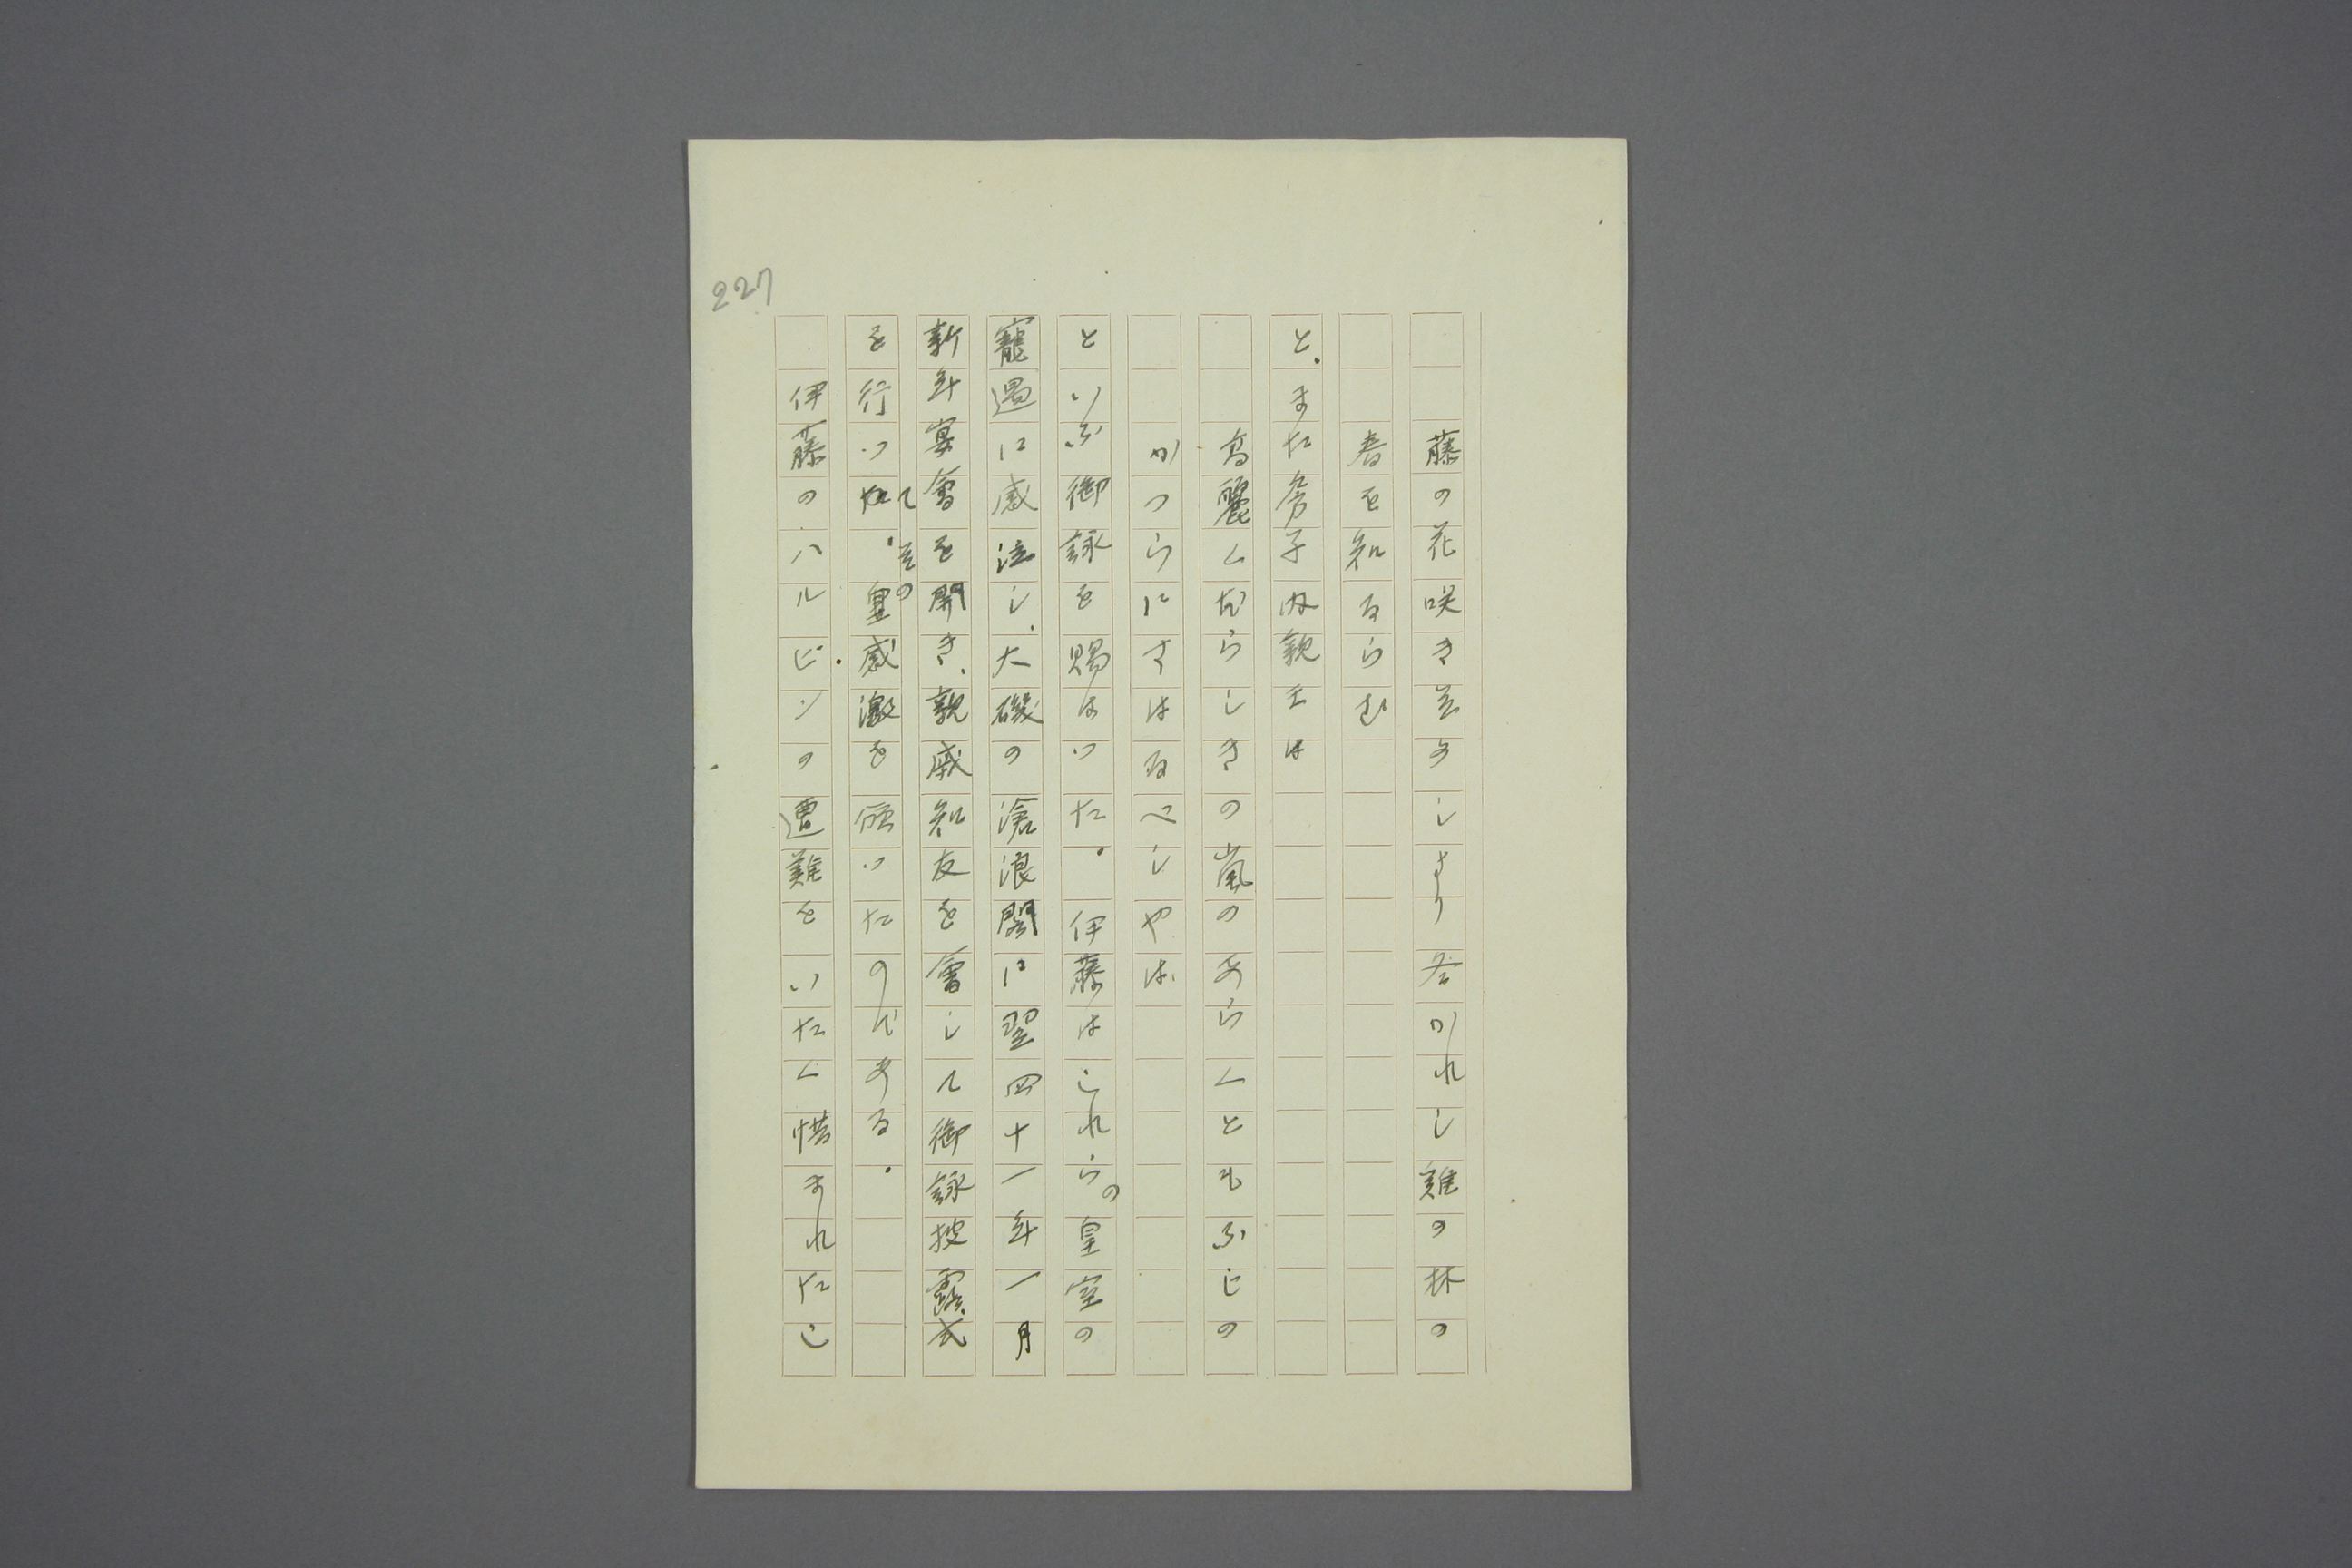 227
藤の花咲き並めしより冬かれし雞の林の
春を知るらむ
と、また房子内親王は
高麗くだらしきの嵐のあらくともふじの
かつらにさはるべしやは
といふ御詠を賜はつた。伊藤はこれらの皇室の
寵遇に感泣し、大磯の滄浪閣に翌四十一年一月
新年宴會を開き、親戚知友を會して御詠披露式
を行つて、その皇感激を頒つたのである。
伊藤のハルビンの遭難をいたく惜まれたこ